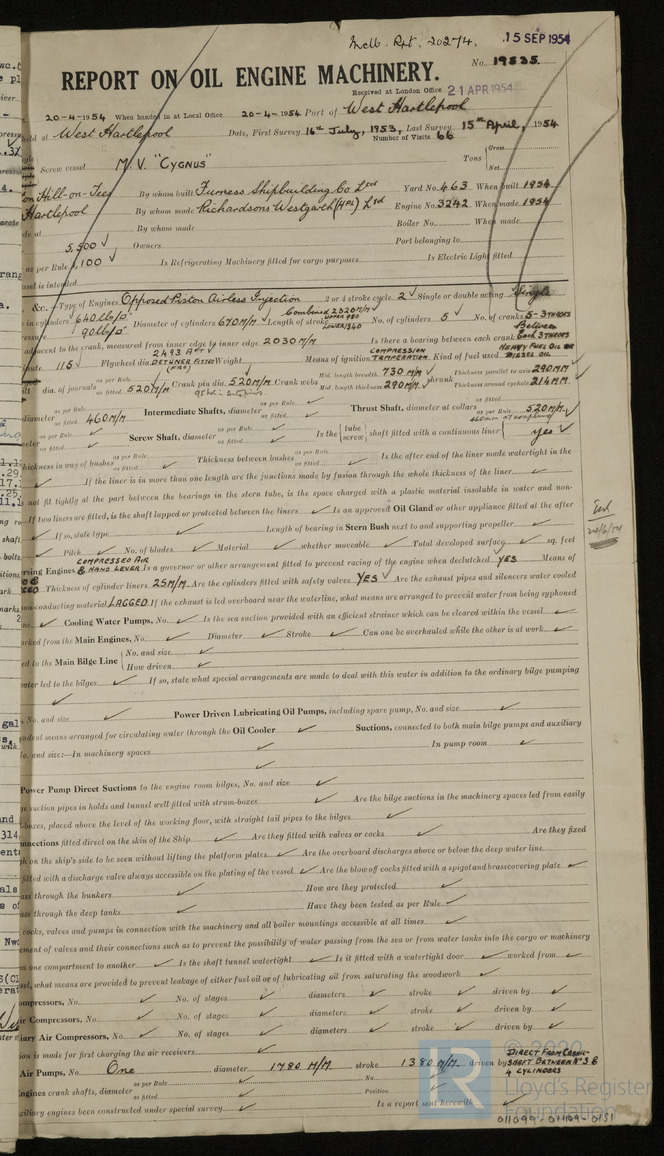 Melb. Rpt. 20274. 15 SEP 1954
No. 19535
REPORT ON OIL ENGINE MACHINERY.
Received at London Office 21 APR 1954
20-4-1954 When handed in at Local Office 20-4-1954 Port of West Hartlepool
held at West Hartlepool Date, First Survey 16th July, 1953, Last Survey 15th April, 1954
Number of Visits 66
Screw vessel M.V. "CYGNUS" Tons Gross
Net
on Hill-on-Tees By whom built Furness Shipbuilding Co Ltd Yard No. 463 When built 1954
Hartlepool By whom made Richardsons Westgarth (HPL) Ltd Engine No. 3242 When made 1954
de at By whom made Boiler No. When made
5,500 ✓ Owners Port belonging to
as per Rule 1,100 ✓ Is Refrigerating Machinery fitted for cargo purposes Is Electric Light fitted
ssel is intended
&c.—Type of Engines Opposed Piston Airless Injection 2 or 4 stroke cycle 2 ✓ Single or double acting Single
in cylinders 640 lb/□" Diameter of cylinders 670 M/M ✓ Length of stroke Combined 2320 M/M No. of cylinders 5 ✓ No. of cranks 5-3 THROWS
90 lb/□" UPPER 980 LOWER 1340
adjacent to the crank, measured from inner edge to inner edge 2030 M/M Is there a bearing between each crank Between Each 3 THROWS
115 ✓ Flywheel dia. 2493 AFT ✓ DETUNER FITTED (FRD) Weight Means of ignition COMPRESSION TEMPERATION Kind of fuel used HEAVY FUEL OIL OR DIESEL OIL
dia. of journals as per Rule as fitted 520 M/M ✓ Crank pin dia. 520 M/M Crank webs Mid. length breadth 730 M/M ✓ shrunk Thickness parallel to axis 290 MM
Mid. length thickness 290 M/M ✓ Thickness around eyehole 214 MM
diameter as per Rule as fitted 460 M/M Intermediate Shafts, diameter as per Rule as fitted ✓ Thrust Shaft, diameter at collars as fitted as per Rule 520 M/M ✓
as per Rule as fitted ✓ Screw Shaft, diameter as per Rule as fitted ✓ Is the { tube screw } shaft fitted with a continuous liner { yes ✓
thickness in way of bushes as per Rule as fitted ✓ Thickness between bushes as per Rule as fitted ✓ Is the after end of the liner made watertight in the
✓ If the liner is in more than one length are the junctions made by fusion through the whole thickness of the liner ✓
not fit tightly at the part between the bearings in the stern tube, is the space charged with a plastic material insoluble in water and non-
If two liners are fitted, is the shaft lapped or protected between the liners ✓ Is an approved Oil Gland or other appliance fitted at the after
✓ If so, state type ✓ Length of bearing in Stern Bush next to and supporting propeller ✓
Pitch ✓ No. of blades ✓ Material ✓ whether moveable ✓ Total developed surface ✓ sq. feet
rsing Engines COMPRESSED AIR & HAND LEVER Is a governor or other arrangement fitted to prevent racing of the engine when declutched YES Means of
Thickness of cylinder liners 25 M/M Are the cylinders fitted with safety valves YES ✓ Are the exhaust pipes and silencers water cooled
on-conducting material LAGGED If the exhaust is led overboard near the waterline, what means are arranged to prevent water from being syphoned
✓ Cooling Water Pumps, No. ✓ Is the sea suction provided with an efficient strainer which can be cleared within the vessel ✓
rked from the Main Engines, No. ✓ Diameter ✓ Stroke ✓ Can one be overhauled while the other is at work ✓
ed to the Main Bilge Line { No. and size ✓
How driven ✓
ater led to the bilges ✓ If so, state what special arrangements are made to deal with this water in addition to the ordinary bilge pumping
✓
No. and size ✓ Power Driven Lubricating Oil Pumps, including spare pump, No. and size ✓
ndent means arranged for circulating water through the Oil Cooler ✓ Suctions, connected to both main bilge pumps and auxiliary
o. and size:—In machinery spaces ✓ In pump room ✓
✓
Power Pump Direct Suctions to the engine room bilges, No. and size ✓
ge suction pipes in holds and tunnel well fitted with strum-boxes ✓ Are the bilge suctions in the machinery spaces led from easily
-boxes, placed above the level of the working floor, with straight tail pipes to the bilges ✓
nnections fitted direct on the skin of the Ship ✓ Are they fitted with valves or cocks ✓ Are they fixed
h on the ship's side to be seen without lifting the platform plates ✓ Are the overboard discharges above or below the deep water line ✓
fitted with a discharge valve always accessible on the plating of the vessel ✓ Are the blow off cocks fitted with a spigot and brass covering plate ✓
ass through the bunkers ✓ How are they protected ✓
ass through the deep tanks ✓ Have they been tested as per Rule ✓
cocks, valves and pumps in connection with the machinery and all boiler mountings accessible at all times ✓
ement of valves and their connections such as to prevent the possibility of water passing from the sea or from water tanks into the cargo or machinery
m one compartment to another ✓ Is the shaft tunnel watertight ✓ Is it fitted with a watertight door ✓ worked from ✓
sel, what means are provided to prevent leakage of either fuel oil or of lubricating oil from saturating the woodwork ✓
ompressors, No. ✓ No. of stages ✓ diameters ✓ stroke ✓ driven by ✓
ir Compressors, No. ✓ No. of stages ✓ diameters ✓ stroke ✓ driven by ✓
iary Air Compressors, No. ✓ No. of stages ✓ diameters ✓ stroke ✓ driven by ✓
ion is made for first charging the air receivers ✓
Air Pumps, No. One diameter 1780 M/M stroke 1380 M/M driven by DIRECT FROM CRANK-SHAFT BETWEEN Nº 3 & 4 CYLINDERS
ngines crank shafts, diameter as per Rule as fitted ✓ No. ✓ Position ✓
xiliary engines been constructed under special survey ✓ Is a report sent herewith ✓
© 2020
Lloyd's Register
Foundation
011099-011109-0151